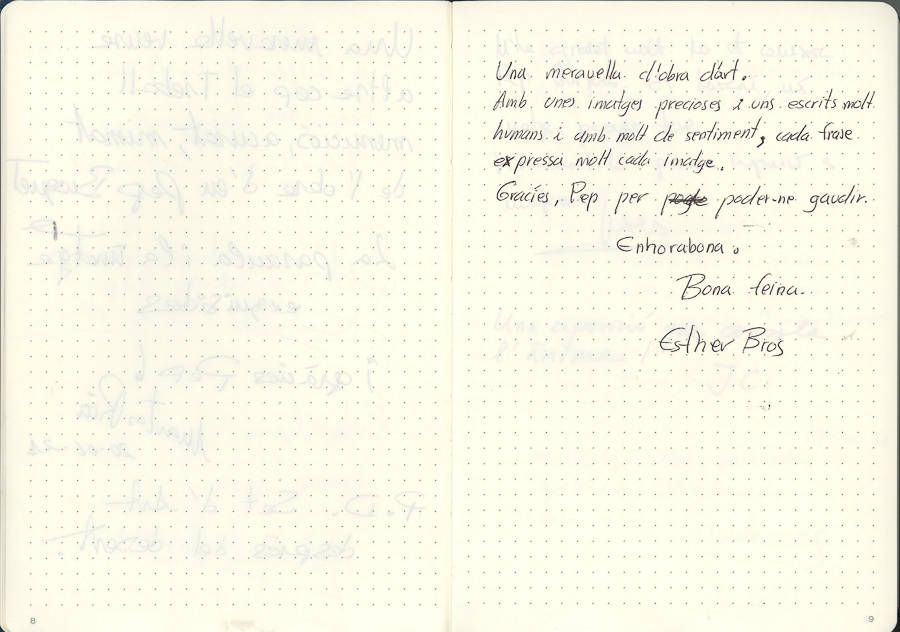 Una meravella d'obra d'art.
Amb unes imatges precioses i uns escrits molt
humans i amb molt de sentiment, cada frase
expressa molt cada imatge.
Gracíes, Pep per poder-ne gaudir.
Enhorabona.
Bona feina.
Esther Bros
8
9